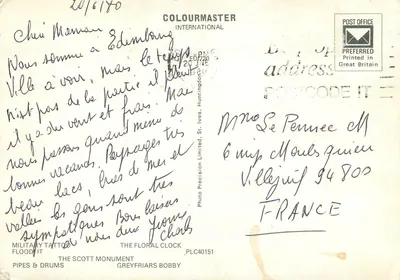 20/6/80
COLOURMASTER
INTERNATIONAL
POST OFFICE
PREFERRED
Printed in
Great Britain
Chère Maman
Nous somme à Edimbourg
Ville à voir, mais le temps
n'est pas de la partie il pleut
il y a du vent et frais. Mais
nous passons quand même de
bonnes vacances. Paysages très
beau lacs, bords de mer et
vallée les gens sont très
sympathiques Bons baisers
à nous deux
address
POSTCODE IT
Photo Precision Limited, St. Ives, Huntingdon
Mme Le Pennec M
6 imp Moulsquien
Villejuif 94800
FRANCE
MILITARY TATTOO
THE FLORAL CLOCK
FLOODLIT
PLC40151
THE SCOTT MONUMENT
PIPES & DRUMS
GREYFRIARS BOBBY